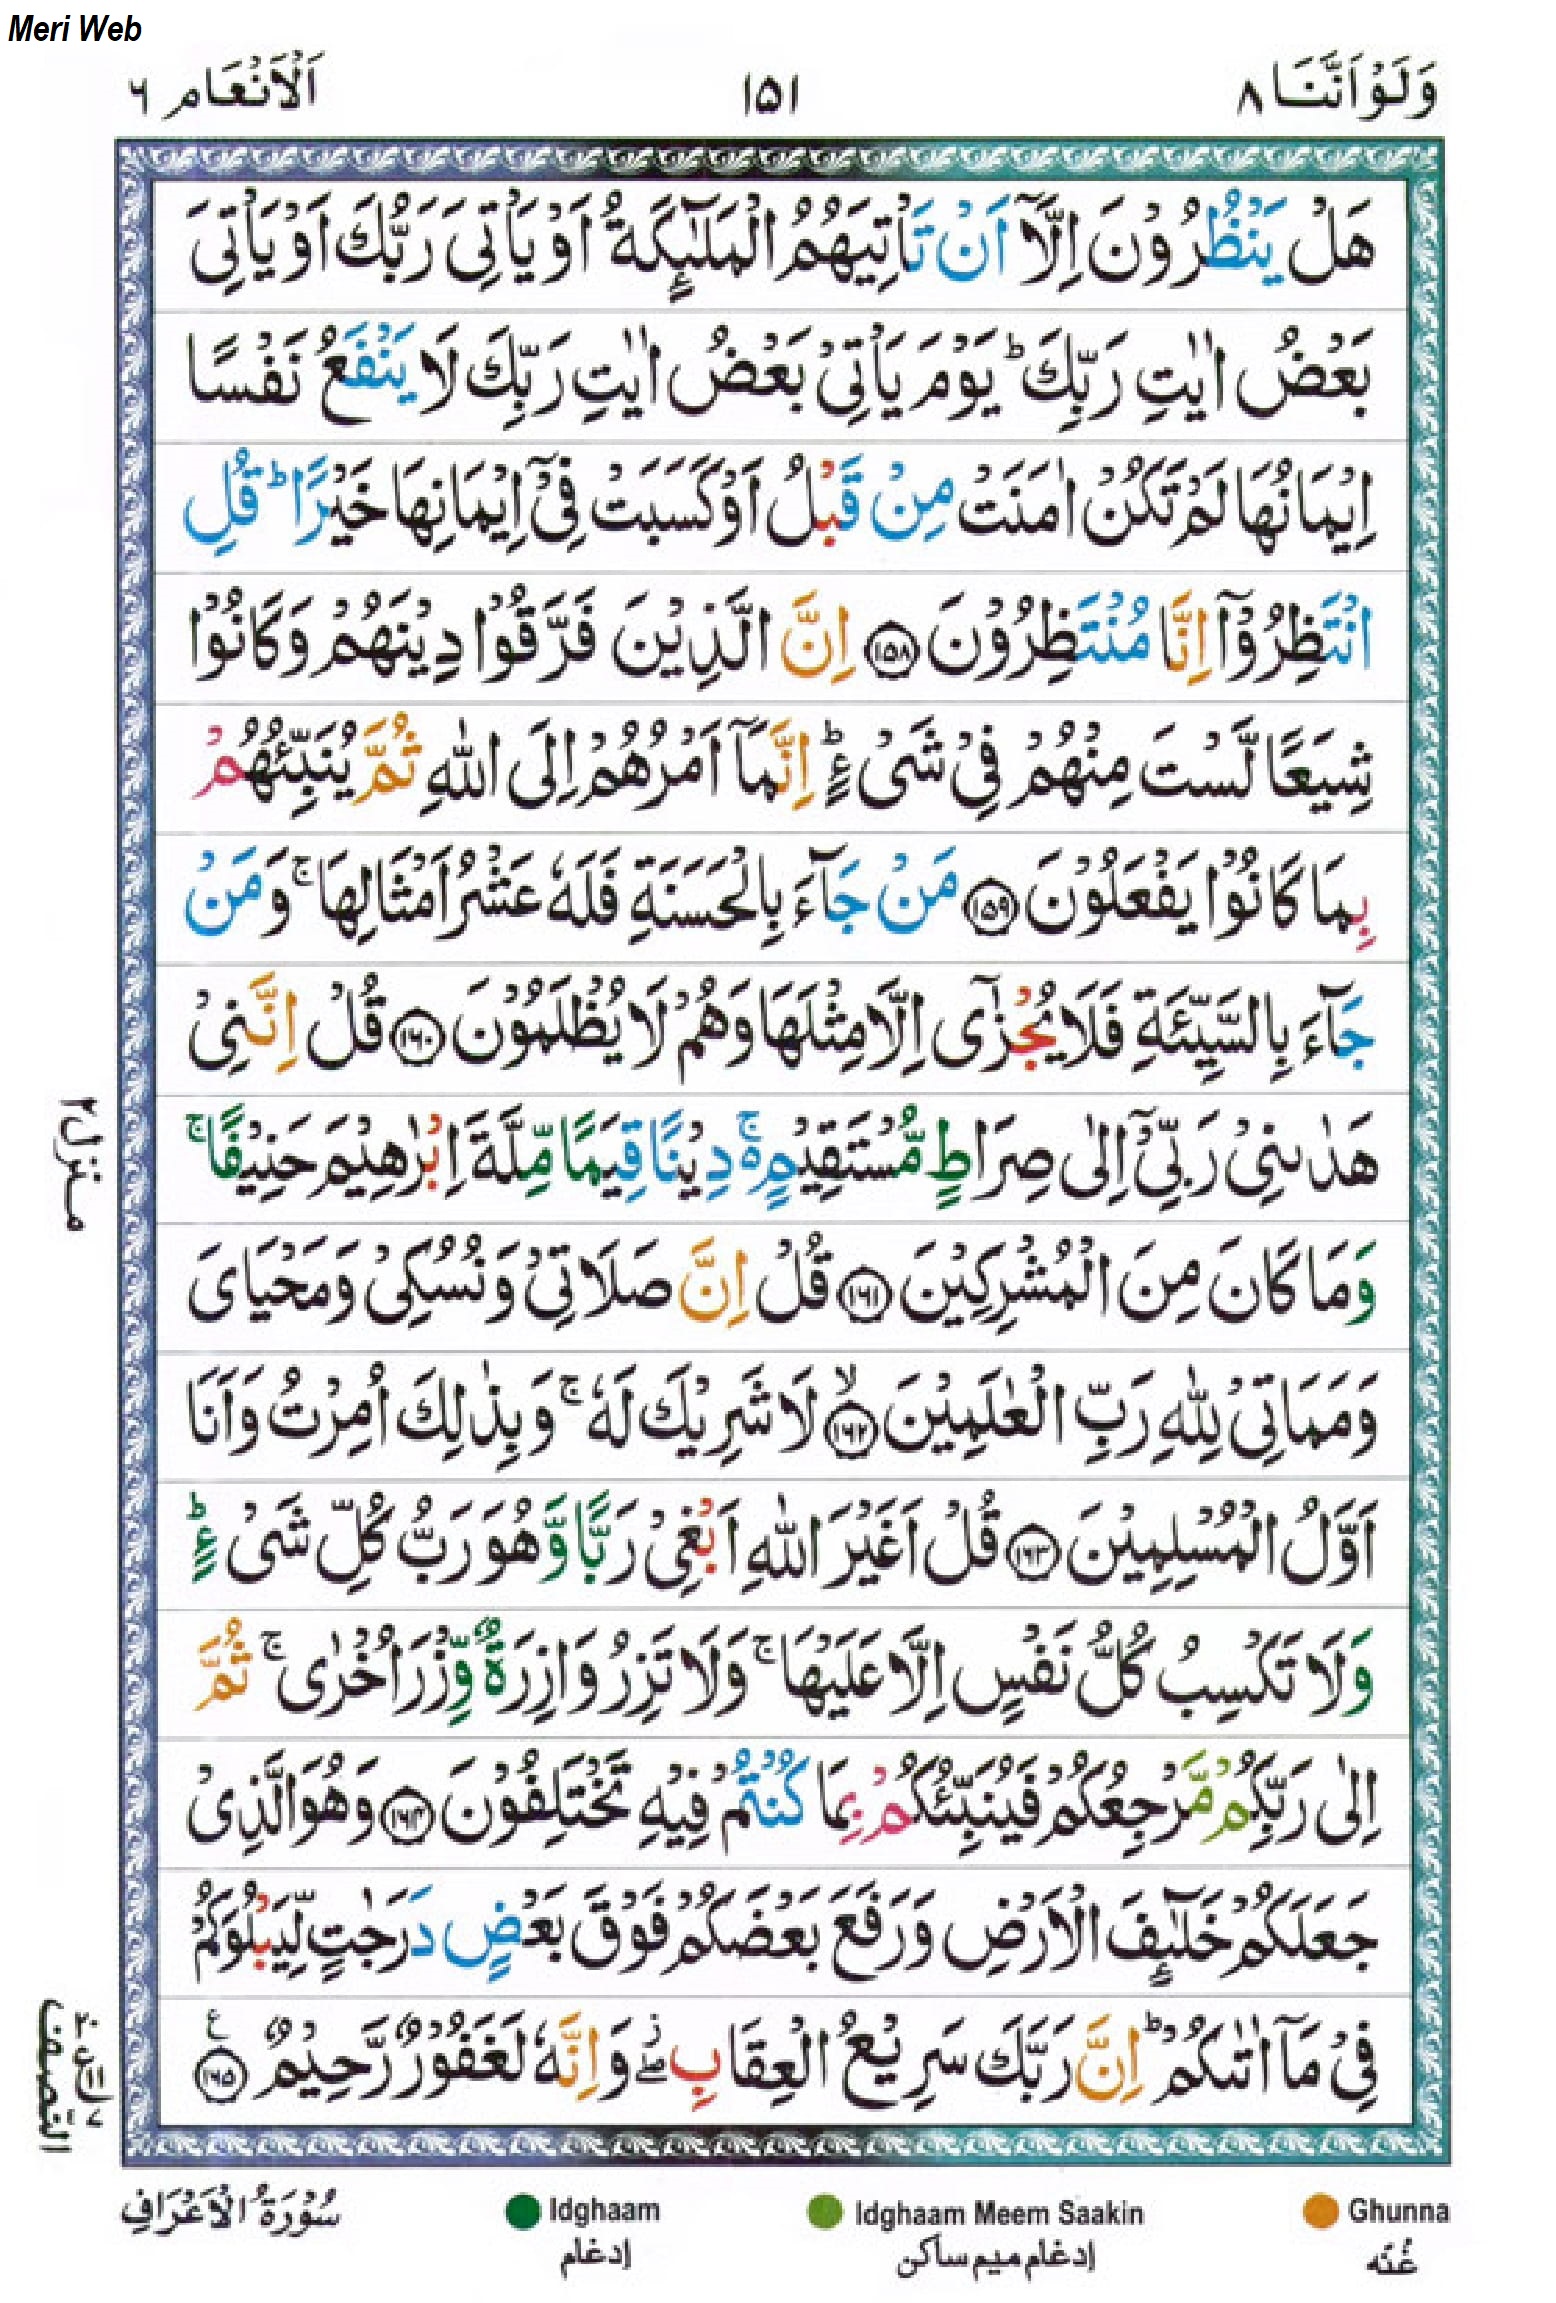 Meri Web
وَلَوْ اَنَّنَا ۸
۱۵۱
اَلْاَنْعَام ۶
هَلْ يَنْظُرُوْنَ اِلَّاۤ اَنْ تَاْتِيَهُمُ الْمَلٰٓئِكَةُ اَوْ يَاْتِیَ رَبُّكَ اَوْ يَاْتِیَ
بَعْضُ اٰيٰتِ رَبِّكَ ؕ يَوْمَ يَاْتِیْ بَعْضُ اٰيٰتِ رَبِّكَ لَا يَنْفَعُ نَفْسًا
اِيْمَانُهَا لَمْ تَكُنْ اٰمَنَتْ مِنْ قَبْلُ اَوْ كَسَبَتْ فِیْۤ اِيْمَانِهَا خَيْرًا ؕ قُلِ
انْتَظِرُوْۤا اِنَّا مُنْتَظِرُوْنَ ۝۱۵۸ اِنَّ الَّذِيْنَ فَرَّقُوْا دِيْنَهُمْ وَكَانُوْا
شِيَعًا لَّسْتَ مِنْهُمْ فِیْ شَیْءٍ ؕ اِنَّمَاۤ اَمْرُهُمْ اِلَی اللّٰهِ ثُمَّ يُنَبِّئُهُمْ
بِمَا كَانُوْا يَفْعَلُوْنَ ۝۱۵۹ مَنْ جَآءَ بِالْحَسَنَةِ فَلَهٗ عَشْرُ اَمْثَالِهَا ۚ وَمَنْ
جَآءَ بِالسَّيِّئَةِ فَلَا يُجْزٰۤی اِلَّا مِثْلَهَا وَهُمْ لَا يُظْلَمُوْنَ ۝۱۶۰ قُلْ اِنَّنِیْ
هَدٰىنِیْ رَبِّیْۤ اِلٰی صِرَاطٍ مُّسْتَقِيْمٍ ۚ۬ دِيْنًا قِيَمًا مِّلَّةَ اِبْرٰهِيْمَ حَنِيْفًا ۚ
وَمَا كَانَ مِنَ الْمُشْرِكِيْنَ ۝۱۶۱ قُلْ اِنَّ صَلَاتِیْ وَنُسُكِیْ وَمَحْيَایَ
وَمَمَاتِیْ لِلّٰهِ رَبِّ الْعٰلَمِيْنَ ۝۱۶۲ۙ لَا شَرِيْكَ لَهٗ ۚ وَبِذٰلِكَ اُمِرْتُ وَاَنَا
اَوَّلُ الْمُسْلِمِيْنَ ۝۱۶۳ قُلْ اَغَيْرَ اللّٰهِ اَبْغِیْ رَبًّا وَّهُوَ رَبُّ كُلِّ شَیْءٍ ؕ
وَلَا تَكْسِبُ كُلُّ نَفْسٍ اِلَّا عَلَيْهَا ۚ وَلَا تَزِرُ وَازِرَةٌ وِّزْرَ اُخْرٰی ۚ ثُمَّ
اِلٰی رَبِّكُمْ مَّرْجِعُكُمْ فَيُنَبِّئُكُمْ بِمَا كُنْتُمْ فِيْهِ تَخْتَلِفُوْنَ ۝۱۶۴ وَهُوَ الَّذِیْ
جَعَلَكُمْ خَلٰٓئِفَ الْاَرْضِ وَرَفَعَ بَعْضَكُمْ فَوْقَ بَعْضٍ دَرَجٰتٍ لِّيَبْلُوَكُمْ
فِیْ مَاۤ اٰتٰىكُمْ ؕ اِنَّ رَبَّكَ سَرِيْعُ الْعِقَابِ ۖ٘ وَاِنَّهٗ لَغَفُوْرٌ رَّحِيْمٌ ۝۱۶۵
منزل ۲
النصف
سُوْرَةُ الْاَعْرَافِ
Idghaam
إدغام
Idghaam Meem Saakin
إدغام ميم ساكن
Ghunna
غُنّه